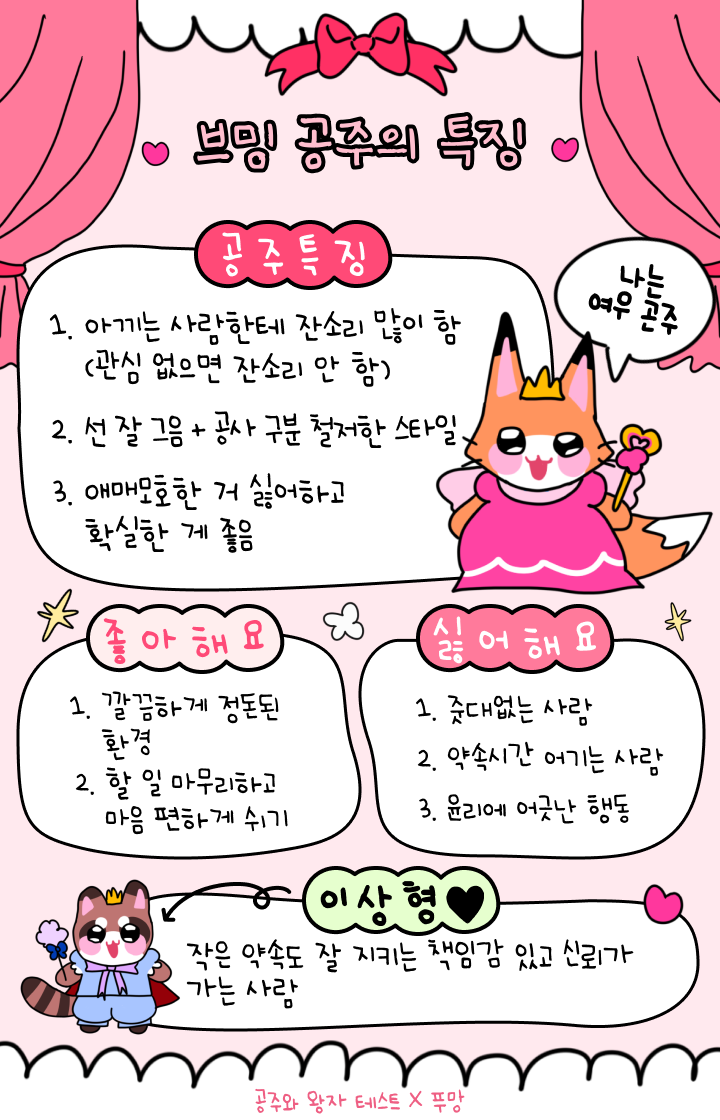 브밍 공주의 특징
공주특징
나는
여우 곤주
1. 아끼는 사람한테 잔소리 많이 함
(관심 없으면 잔소리 안 함)
2. 선 잘 그음 + 공사 구분 철저한 스타일
3. 애매모호한 거 싫어하고
확실한 게 좋음
좋아해요
1. 깔끔하게 정돈된
환경
2. 할 일 마무리하고
마음 편하게 쉬기
싫어해요
1. 줏대없는 사람
2. 약속시간 어기는 사람
3. 윤리에 어긋난 행동
이상형
작은 약속도 잘 지키는 책임감 있고 신뢰가
가는 사람
공주와 왕자 테스트 X 푸망